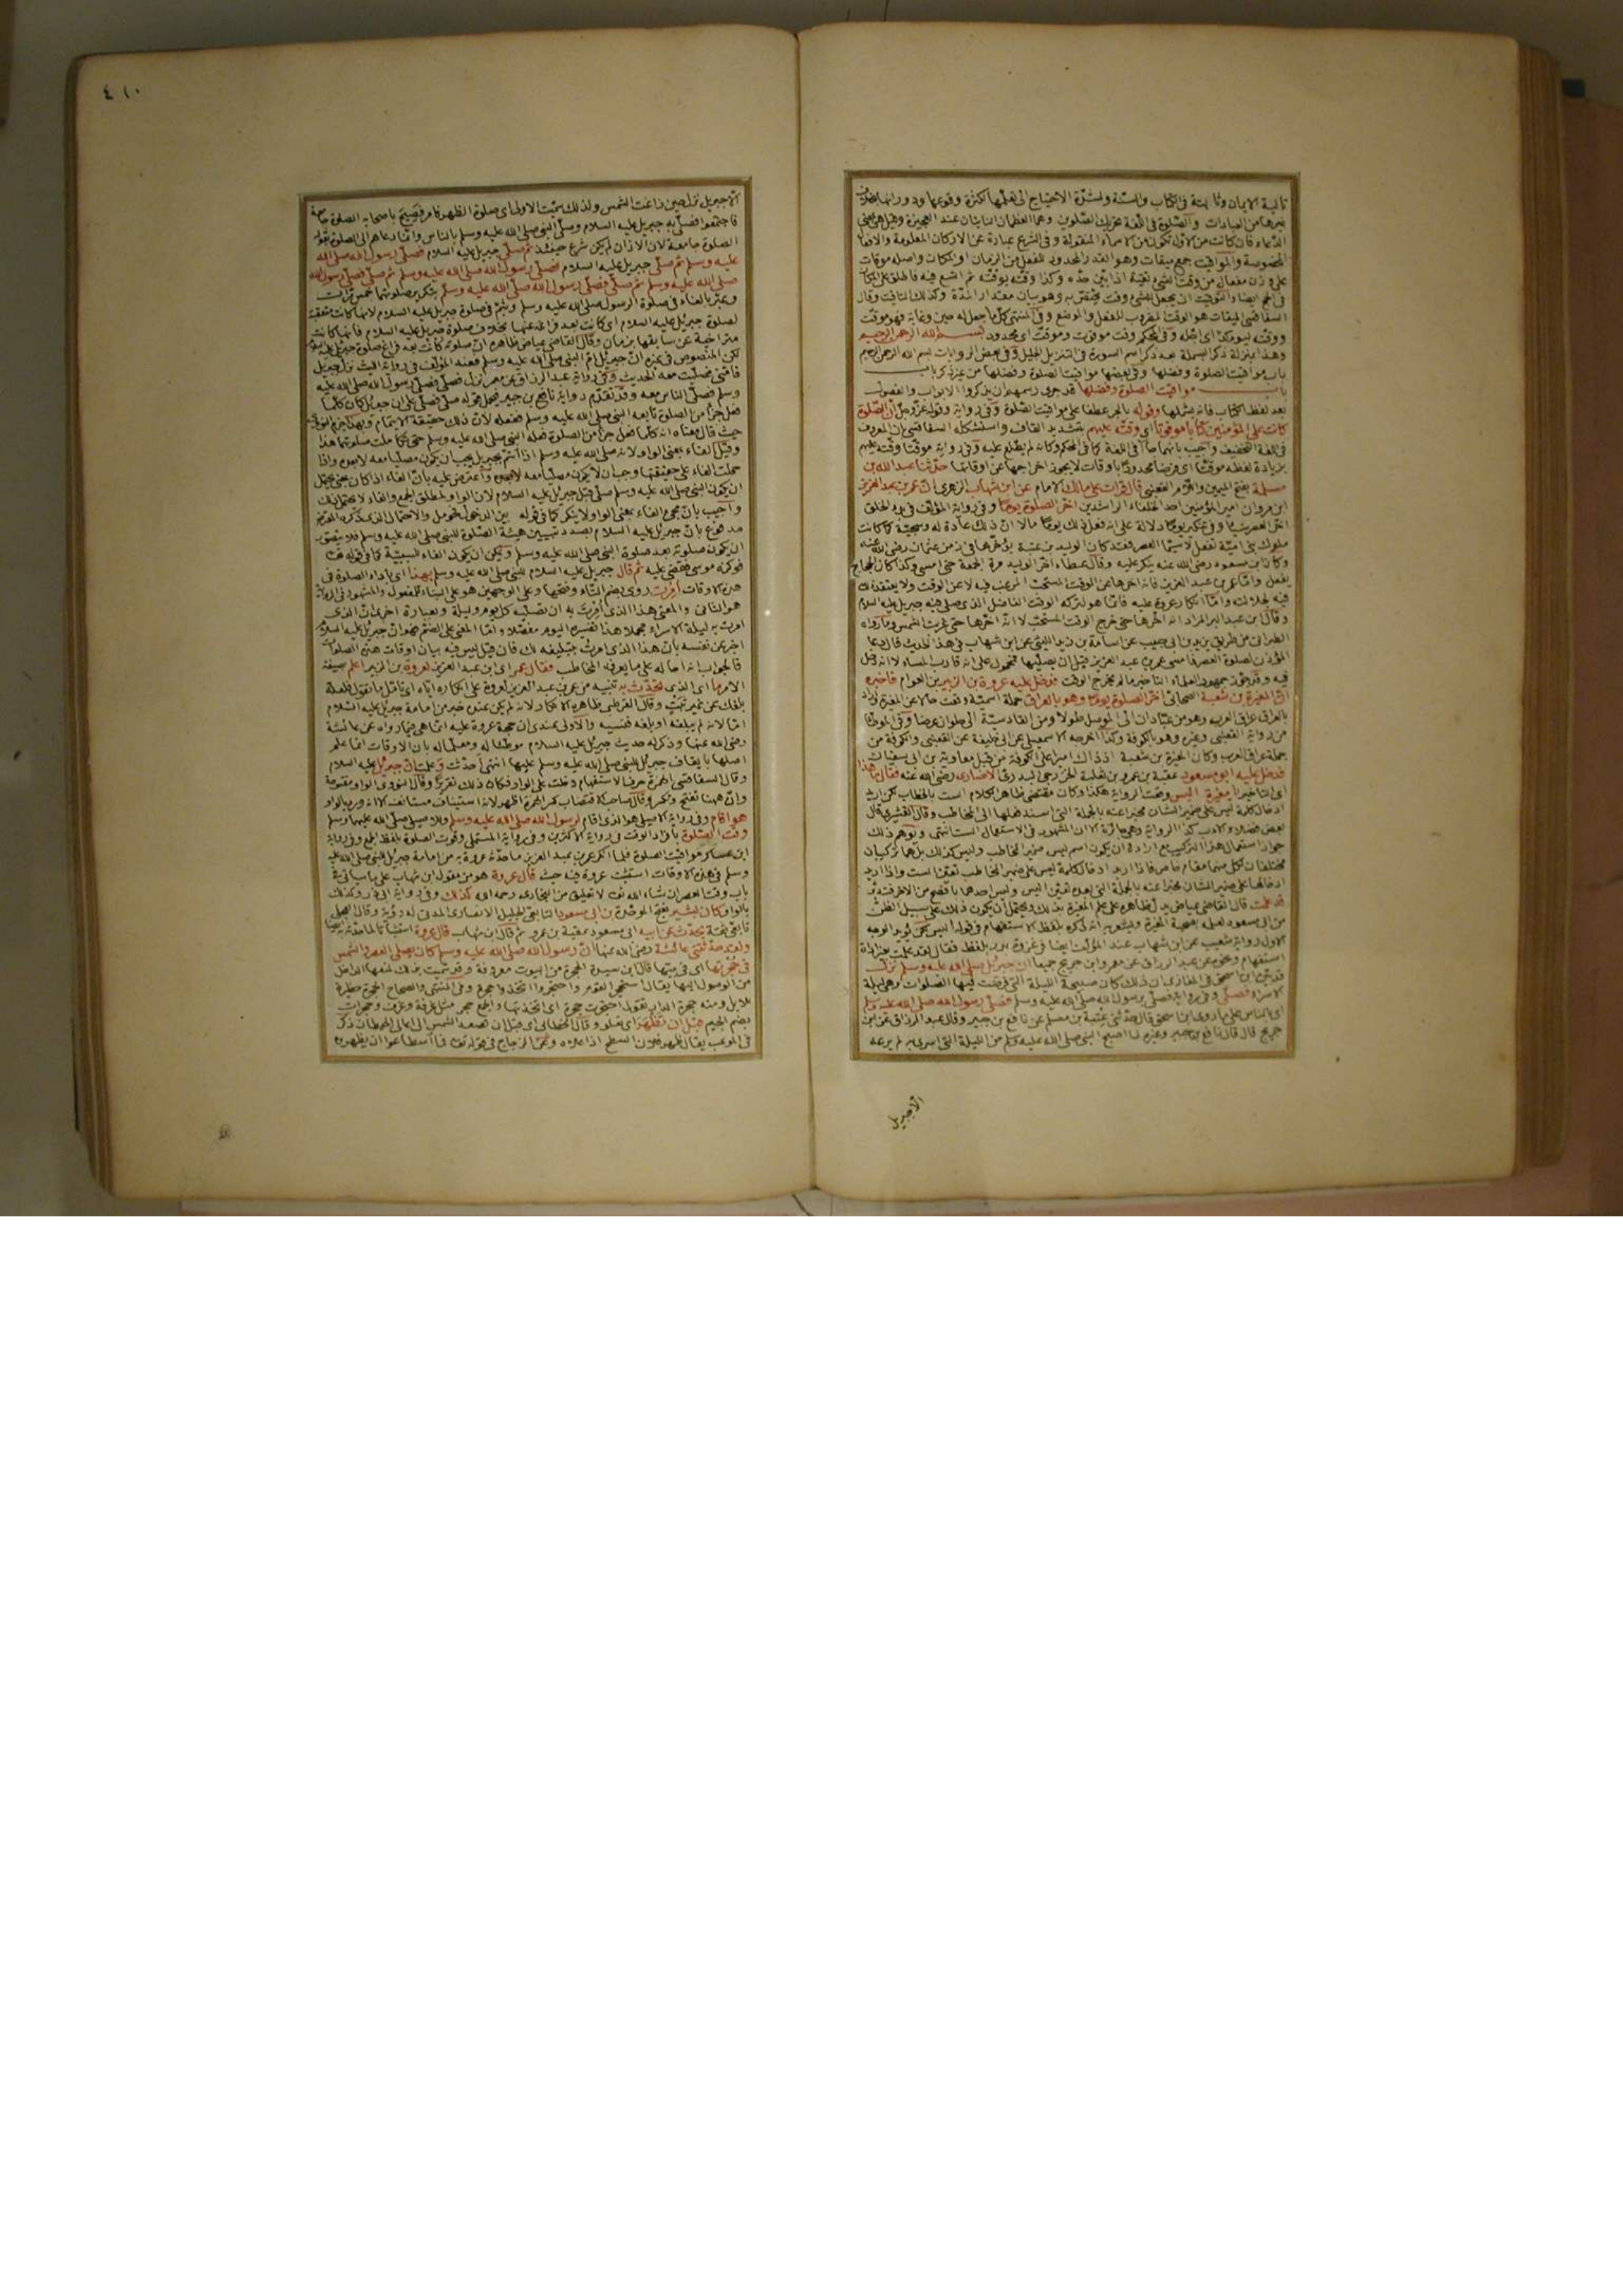 تالية الايمان وثابتة في الكتاب والسنة ولشدة الاحتياج الى تعلمها لكثرة وقوعها ودورانها
غيرها من العبادات والصلوة في اللغة تحريك الصلوين وهما العظمان الناتيان عند العجيزة
الدعاء فان كانت من الاول تكون من الاسماء المنقولة وفي الشرع عبارة عن الاركان المعلومة والافعال
المخصوصة والمواقيت جمع ميقات وهو القدر المحدود للفعل من الزمان او المكان واصله موقات
على وزن مفعال من وقت الشئ يقته اذا بين حده وكذا وقته يوقته ثم اتسع فيه فاطلق على المكان
في الحج ايضا والتوقيت ان يجعل للشئ وقت يختص به وهو بيان مقدار المدة وكذلك التاقيت وقال
السفاقسي الميقات هو الوقت المضروب للفعل والموضع وفي المنتهى كل ما جعل له حين وغاية فهو موقت
ووقته ليوم كذا اى اجله وفي المحكم وقت موقوت وموقت اى محدود بسم الله الرحمن الرحيم
باب مواقيت الصلوة وفضلها وفي بعضها مواقيت الصلوة وفضلها من غير ذكر باب
باب مواقيت الصلوة وفضلها قد جرى رسمهم ان يذكروا الابواب والفصول
بعد لفظ الكتاب فانه يشملها وقوله بالجر عطفا على مواقيت الصلوة وفي رواية وقوله عز وجل ان الصلوة
كانت على المؤمنين كتابا موقوتا اى وقته عليهم بتشديد القاف واستشكله السفاقسي بان المعروف
في اللغة التخفيف واجيب بانهما جاآ في اللغة كما في المحكم وكانه لم يطلع عليه وفي رواية موقتا وقته عليهم
بزيادة لفظه موقتا اى فرضا محدودا باوقات لا يجوز اخراجها عن اوقاتها حدثنا عبد الله بن
مسلمة بفتح الميمين واللام القعنبي قال قرات على مالك الامام عن ابن شهاب الزهرى ان عمر بن عبد العزيز
ابن مروان امير المؤمنين احد الخلفاء الراشدين اخر الصلوة يوما وفي رواية المؤلف في بدء الخلق
اخر العصر شيئا وفي تنكير يوما دلالة على انه فعل ذلك يوما ما لا ان ذلك عادة له وسجية كما كانت
ملوك بني امية تفعل لا سيما العصر فقد كان الوليد بن عتبة يؤخرها في زمن عثمان رضى الله عنه
وكان ابن مسعود رضى الله عنه ينكر عليه وقال عطاء اخر الوليد مرة الجمعة حتى امسى وكذا كان الحجاج
يفعل واما عمر بن عبد العزيز فانه اخرها عن الوقت المستحب المرغب فيه لا عن الوقت ولا يعتقد ذلك
فيه لجلالته وانما انكار عروة عليه فانما هو لتركه الوقت الفاضل الذى صلى فيه جبريل عليه السلام
وقال ابن عبد البر المراد انه اخرها حتى خرج الوقت المستحب لا انه اخرها حتى غربت الشمس وما رواه
الطبراني من طريق يزيد بن ابى حبيب عن اسامة بن زيد الليثى عن ابن شهاب في هذا الحديث قال دعا
المؤذن لصلوة العصر فامسى عمر بن عبد العزيز قبل ان يصليها فمحمول على انه قارب المساء لا انه دخل
فيه وقد جوز جمهور العلماء التاخير ما لم يخرج الوقت فدخل عليه عروة بن الزبير بن العوام فاخبره
ان المغيرة بن شعبة الصحابى اخر الصلوة يوما وهو بالعراق جملة اسمية وقعت حالا عن المغيرة واراد
بالعراق عراق العرب وهو من عبادان الى الموصل طولا ومن القادسية الى حلوان عرضا وفي الموطأ
من رواية القعنبي وغيره وهو بالكوفة وكذا اخرجه الاسمعيلى عن ابى خليفة عن القعنبى والكوفة من
جملة عراق العرب وكان المغيرة بن شعبة اذ ذاك اميرا على الكوفة من قبل معاوية بن ابى سفيان
فدخل عليه ابو مسعود عقبة بن عمرو بن ثعلبة الخزرجى البدرى الانصارى رضى الله عنه فقال ما هذا
اى التاخير يا مغيرة اليس وقعت الرواية هكذا وكان مقتضى ظاهر الكلام الست بالخطاب لكن اريد
ادخال كلمة ليس على ضمير الشان مخبرا عنه بالجملة التى اسند فعلها الى المخاطب وقال القشيرى قال
بعض فضلاء الادب كذا الرواية وهى جائزة الا ان المشهور في الاستعمال الست انتهى وتوهم ذلك
جواز استعمال هذا التركيب مع ارادة ان يكون اسم ليس ضمير المخاطب وليس كذلك بل هما تركيبان
مختلفان لكل منهما مقام خاص فاذا اريد ادخال كلمة ليس على ضمير المخاطب تعين الست واذا اريد
ادخالها على ضمير الشان مخبرا عنه بالجملة التى بعده تعين اليس وليس احدهما بافصح من الاخر
قد علمت قال القاضى عياض يدل ظاهره على علم المغيرة بذلك ويحتمل ان يكون ذلك على سبيل الظن
من ابى مسعود لعلمه بصحبة المغيرة ويشعر به انه ذكره بلفظ الاستفهام في قوله اليس لكن يؤيد الوجه
الاول رواية شعيب عن ابن شهاب عند المؤلف ايضا في غزوة بدر بلفظ فقال لقد علمت بغير اداة
استفهام ونحوه عن عبد الرزاق عن معمر وابن جريج جميعا ان جبريل صلى الله عليه وسلم نزل
قد بين ابن اسحق في المغازى ان ذلك كان صبيحة الليلة التى فرضت فيها الصلوات وهى ليلة
الاسراء فصلى وفي رواية فصلى برسول الله صلى الله عليه وسلم فصلى رسول الله صلى الله عليه وسلم
اى بالناس على ما روى ابن اسحق قال حدثنى عتبة بن مسلم عن نافع بن جبير وقال عبد الرزاق عن ابن
جريج قال قال نافع بن جبير وغيره لما اصبح النبى صلى الله عليه وسلم من الليلة التى اسرى به لم يرعه
الا جبريل
٤١٠
الا جبريل نزل حين زاغت الشمس ولذلك سميت الاولى اى صلوة الظهر فامر فصيح باصحابه الصلوة جامعة
فاجتمعوا فصلى به جبريل عليه السلام وصلى النبى صلى الله عليه وسلم بالناس وانما دعاهم الى الصلوة بقوله
الصلوة جامعة لان الاذان لم يكن شرع حينئذ ثم صلى جبريل عليه السلام فصلى رسول الله صلى الله
عليه وسلم ثم صلى جبريل عليه السلام فصلى رسول الله صلى الله عليه وسلم ثم صلى فصلى رسول الله
صلى الله عليه وسلم ثم صلى فصلى رسول الله صلى الله عليه وسلم بتكرير صلوتهما خمس مرات
وعبر بالفاء في صلوة الرسول صلى الله عليه وسلم وبثم في صلوة جبريل عليه السلام لانها كانت متعقبة
لصلوة جبريل عليه السلام اى كانت بعد فراغه عنها بخلاف صلوة جبريل عليه السلام فانها كانت
متراخية عن سابقها بزمان وقال القاضى عياض ظاهره ان صلوته كانت بعد فراغ صلوة جبريل عليه السلام
لكن المنصوص في غيره ان جبريل ام النبى صلى الله عليه وسلم فعند المؤلف في رواية الليث نزل جبريل
فامنى فصليت معه الحديث وفي رواية عبد الرزاق عن معمر نزل فصلى فصلى رسول الله صلى الله عليه
وسلم فصلى الناس معه وقد تقدم رواية نافع بن جبير فيحمل قوله صلى فصلى على ان جبريل كان كلما
فعل جزأ من الصلوة تابعه النبى صلى الله عليه وسلم ففعله لان ذلك حقيقة الائتمام وبهذا جزم النووى
حيث قال معناه انه كلما فعل جزأ من الصلوة فعله النبى صلى الله عليه وسلم حتى تكاملت صلوتهما هذا
وقيل الفاء بمعنى الواو لانه صلى الله عليه وسلم اذا ائتم بجبريل يجب ان يكون مصليا معه لا بعده واذا
حملت الفاء على حقيقتها وجب ان لا يكون مصليا معه لا بعده واعترض عليه بان الفاء اذا كان بمعنى يحتمل
ان يكون النبى صلى الله عليه وسلم صلى قبل جبريل عليه السلام لان الواو لمطلق الجمع والفاء لا يحتمل ذلك
واجيب بان مجئ الفاء بمعنى الواو لا ينكر كما في قوله بين الدخول فحومل والاحتمال الذى ذكره المعترض
مدفوع بان جبريل عليه السلام بصدد تبيين هيئة الصلوة للنبى صلى الله عليه وسلم فلا يتصور
ان يكون صلوته بعد صلوة النبى صلى الله عليه وسلم ويمكن ان يكون الفاء للسببية كما في قوله تعالى
فوكزه موسى فقضى عليه ثم قال جبريل عليه السلام للنبى صلى الله عليه وسلم بهذا اى باداء الصلوة في
هذه الاوقات امرت روى بضم التاء وفتحها وعلى الوجهين هو على البناء للمفعول والمشهور في الرواية
هو الثانى والمعنى هذا الذى امرت به ان تصليه كل يوم وليلة وبعبارة اخرى ان الذى
امرت به ليلة الاسراء مجملا هذا تفسيره اليوم مفصلا واما المعنى على الضم فهو ان جبريل عليه السلام
اخبر عن نفسه بان هذا الذى امرت بتبليغه لك فان قيل ليس فيه بيان اوقات هذه الصلوات
فالجواب انه احاله على ما يعرفه المخاطب فقال عمر اى ابن عبد العزيز لعروة بن الزبير اعلم بصيغة
الامر ما اى الذى تحدث به تنبيه من عمر بن عبد العزيز لعروة على انكاره اياه اى تامل ما تقول فلعله
بلغك عن غير ثبت وقال القرطبى ظاهره الانكار لانه لم يكن عنده خبر من امامة جبريل عليه السلام
اما لانه لم يبلغه او بلغه فنسيه والاولى عندى ان حجة عروة عليه انما هى فيما رواه عن عائشة
رضى الله عنها وذكر له حديث جبريل عليه السلام موطئا له ومعلما له بان الاوقات انما علم
اصلها بايقاف جبريل للنبى صلى الله عليه وسلم عليها انتهى احدثت وعلمت ان جبريل عليه السلام
وقال السفاقسى الهمزة حرف الاستفهام دخلت على الواو فكان ذلك تقريرا وقال النووى الواو مفتوحة
وان ههنا تفتح وتكسر وقال صاحب الاقتضاب كسر الهمزة اظهر لانه استيناف مستانف الا انه ورد بالواو
هو اقام وفي رواية الاصيلى هو الذى اقام لرسول الله صلى الله عليه وسلم
وقت الصلوة بافراد الوقت في رواية الاكثرين وفي رواية المستملى وقوت الصلوة بلفظ الجمع وفي رواية
ابن عساكر مواقيت الصلوة فلما انكر عمر بن عبد العزيز ما حدثه عروة به من امامة جبريل للنبى صلى الله عليه
وسلم في هذه الاوقات استثبت عروة فيه حيث قال عروة هو من مقول ابن شهاب على ما سياتى في
باب وقت العصر ان شاء الله تعالى لا تعليق من البخارى رحمه الله كذلك وفي رواية ابى ذر وكذلك
بالواو كان بشير بفتح الموحدة بن ابى مسعود التابعى الجليل الانصارى المدنى له رؤية وقال العجلى
تابعى ثقة يحدث عن ابيه ابى مسعود عقبة بن عمرو ثم قال ابن شهاب قال عروة
ولقد حدثتنى عائشة رضى الله عنها ان رسول الله صلى الله عليه وسلم كان يصلى العصر والشمس
في حجرتها اى في بيتها قال ابن سيده الحجرة من البيوت معروفة وقد سميت بذلك لمنعها الداخل
من الوصول اليها يقال استحجر القوم واحتجروا اتخذوا حجرة وفي المنتهى والصحاح الحجرة حظيرة
للابل ومنه حجرة الدار تقول احتجرت حجرة اى اتخذتها والجمع حجر مثل غرفة وغرف وحجرات
بضم الجيم قبل ان تظهر اى تعلو وقال الخطابى اى قبل ان تصعد الشمس الى اعالى الحيطان ذكر
في الموعب يقال ظهر فلان السطح اذا علاه وعن الزجاج في قوله تعالى فما اسطاعوا ان يظهروه